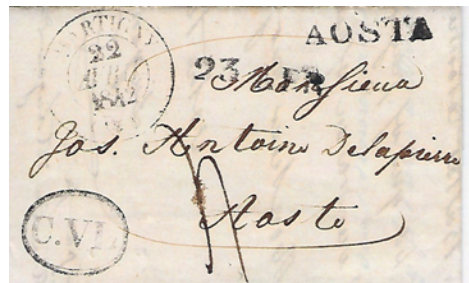 MARTIGNY
22
1842
AOSTA
23
Monsieur
Jos. Antoine Delapierre
Aoste
4
C.VL